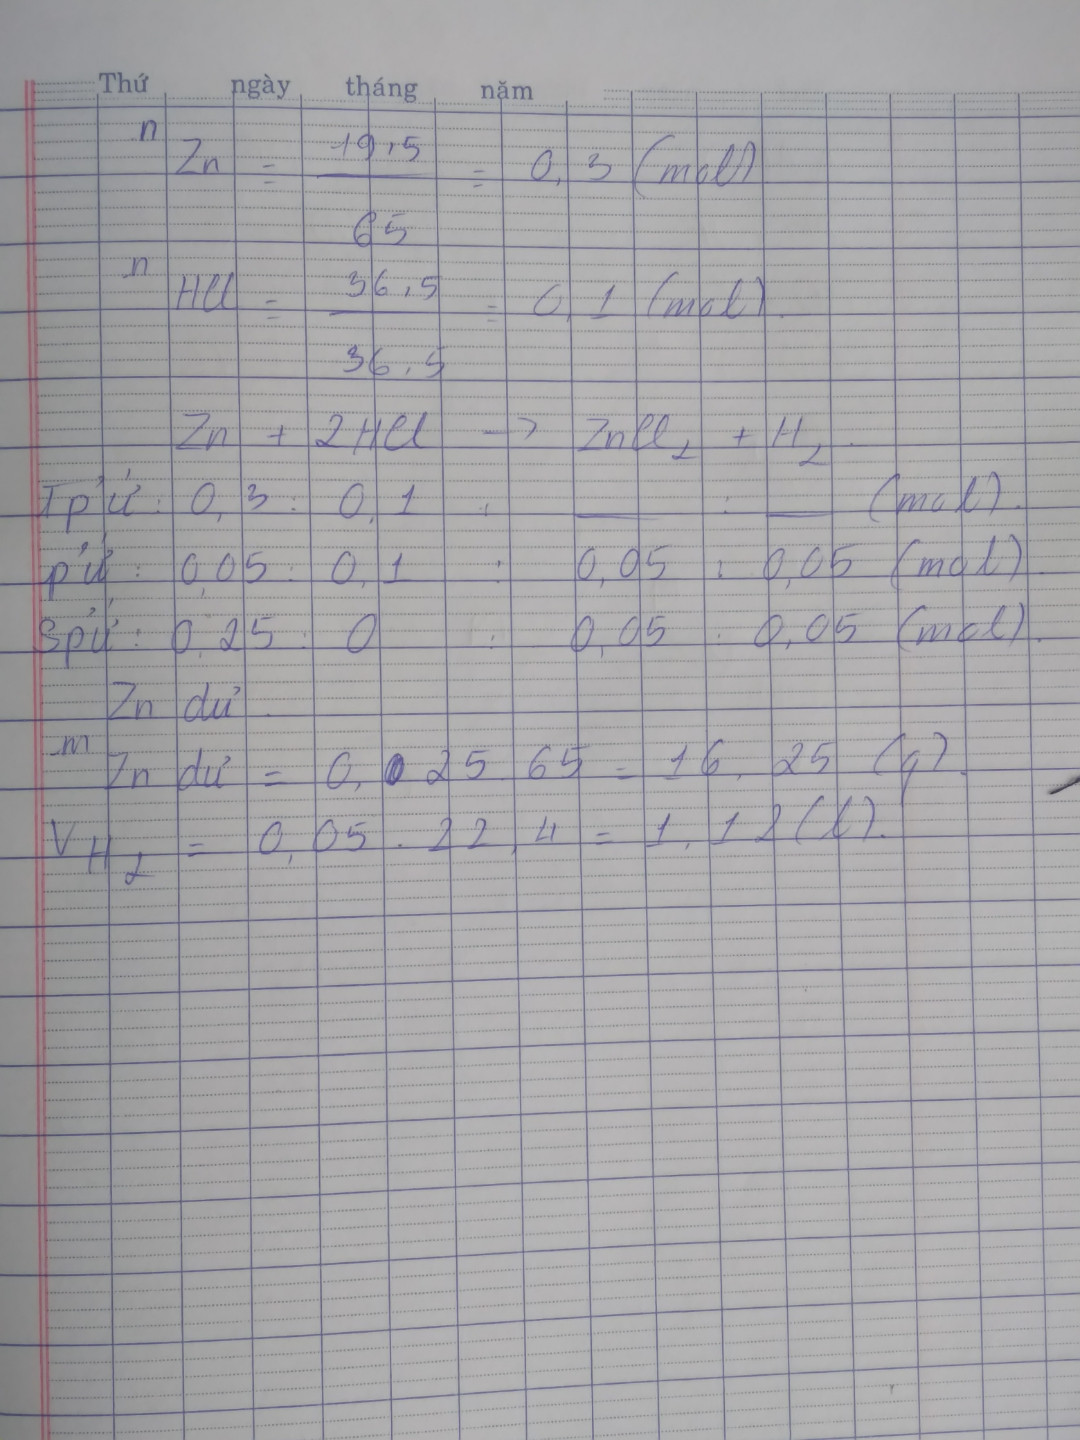 Thứ ngày tháng năm
n Zn = 19,5 / 65 = 0,3 (mol)
n HCl = 36,5 / 36,5 = 0,1 (mol).
Zn + 2HCl -> ZnCl2 + H2.
Tpứ: 0,3 : 0,1 : — : — (mol).
pứ: 0,05 : 0,1 : 0,05 : 0,05 (mol).
Spứ: 0,25 : 0 : 0,05 : 0,05 (mol).
Zn dư.
m Zn dư = 0,025.65 = 16,25 (g).
VH2 = 0,05.22,4 = 1,12(l).